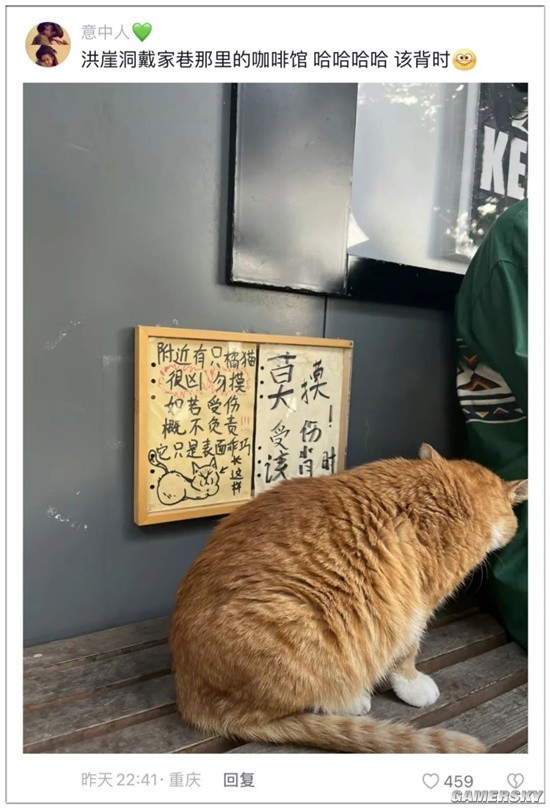 意中人💚
洪崖洞戴家巷那里的咖啡馆 哈哈哈哈 该背时
KE
附近有只橘猫
很凶!勿摸
如若受伤
概不负责!!!
它只是表面乖巧
长这样
莫摸!
受伤
该背时
昨天 22:41·重庆 回复
459
GAMERSKY